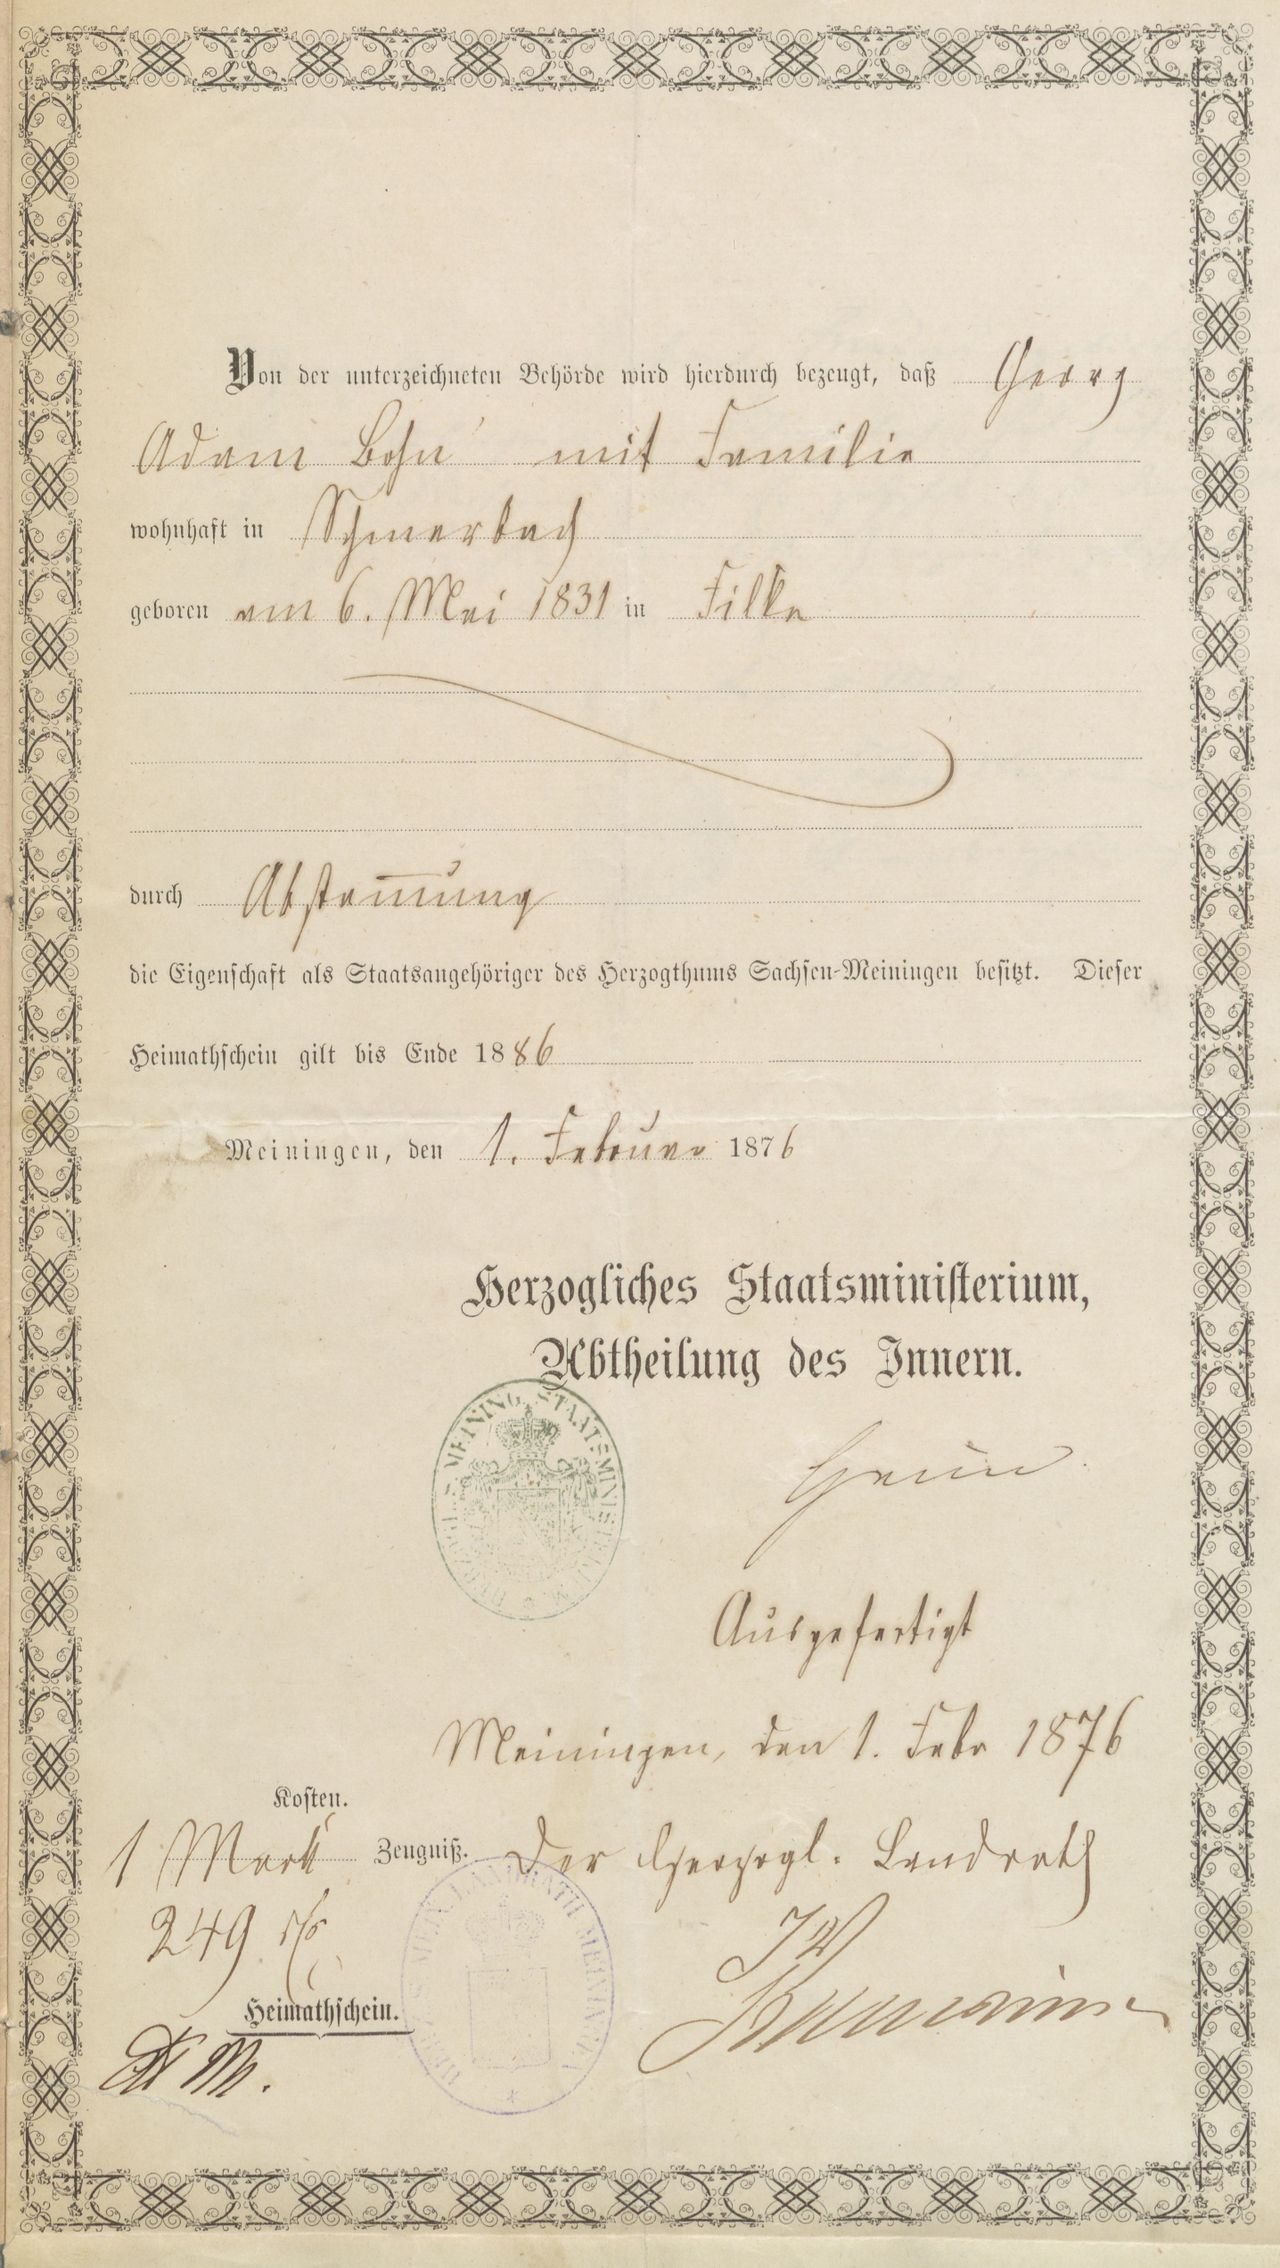 Von der unterzeichneten Behörde wird hierdurch bezeugt, daß Georg
Adam Bohn mit Familie
wohnhaft in Schmerbach
geboren am 6. Mai 1831 in Filke
durch Abstam̄ung
die Eigenschaft als Staatsangehöriger des Herzogthums Sachsen-Meiningen besitzt. Dieser
Heimathschein gilt bis Ende 1886
Meiningen, den 1. Februar 1876
Herzogliches Staatsministerium,
Abtheilung des Innern.
MEINING. STAATSMINISTERIUM
Ausgefertigt
Meiningen, den 1. Febr 1876
Kosten.
1 Mark Zeugniß. Der Herzogl. Landrath
249
IV
LANDRATH MEININGEN
Heimathschein.